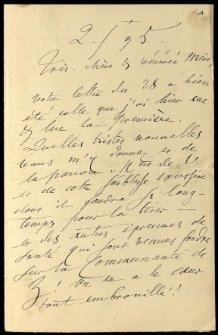 2. 5 95.
Très chère et vénérée Mère
votre lettre du 28 a bien
été celle que j'ai
lue la première.
Quelles tristes nouvelles
vous m'y donnez de
la pauvre Mère de
et de cette faiblesse
dont il faudra long-
temps pour la tirer
et des autres épreuves de
santé qui sont venues fondre
sur la Communauté de
! On en a le cœur
tout embrouillé!!